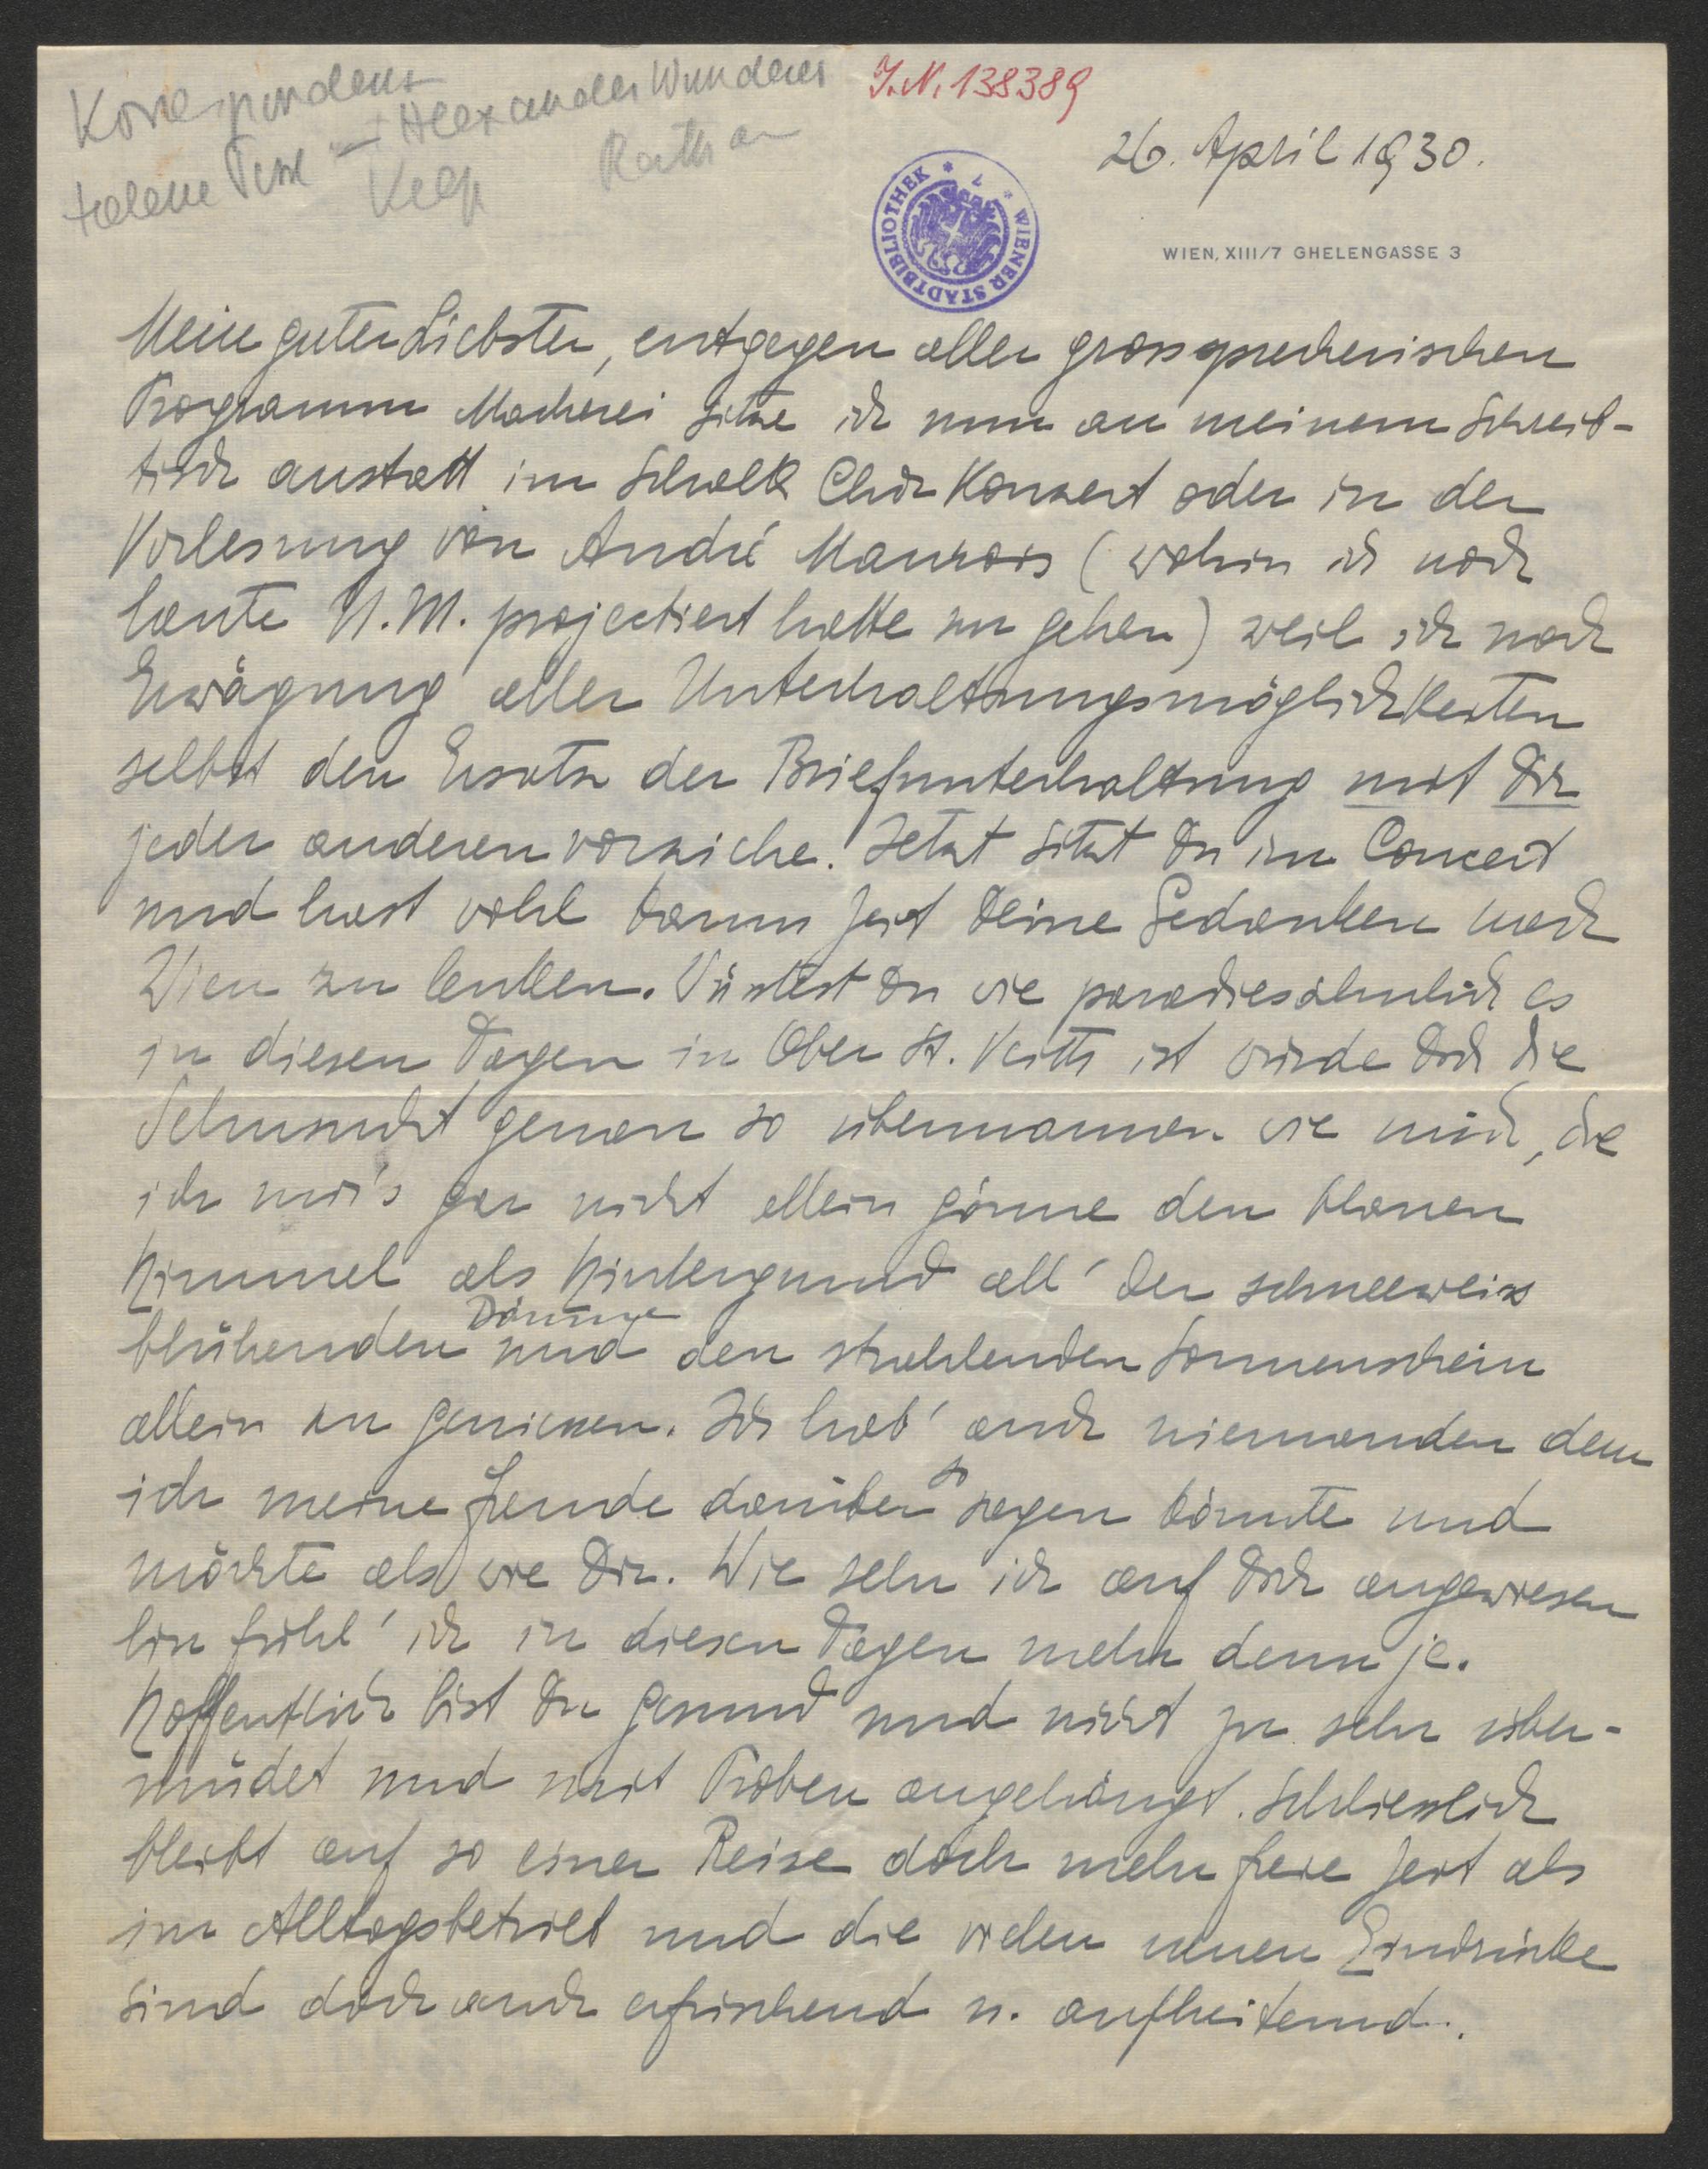 Korrespondenz
Helene – Alexander Wunderer
Rathan
I.N. 138389
26. April 1930.
WIENER STADTBIBLIOTHEK
WIEN, XIII/7 GHELENGASSE 3
Mein guter Liebster, entgegen aller grossprecherischen
Programm Macherei sitze ich nun an meinem Schreib-
tisch anstatt im Schalk Chor Konzert oder in der
Vorlesung von André Maurois (wohin ich noch
heute N.M. projectiert hatte zu gehen) weil ich nach
Erwägung aller Unterhaltungsmöglichkeiten
selbst den Ersatz der Briefunterhaltung mit Dir
jeder anderen vorziehe. Jetzt sitzt Du im Concert
und hast wohl kaum Zeit Deine Gedanken nach
Wien zu lenken. Wüsstest Du wie paradiesähnlich es
in diesen Tagen in Ober St. Veith ist würde Dich die
Sehnsucht genau so übermannen wie mich, die
ich mir's gar nicht allein gönne den blauen
Himmel als Hintergrund all' der schneeweiss
blühenden Bäume und den strahlenden Sonnenschein
allein zu geniessen. Ich hab' auch niemanden dem
ich meine Freude darüber so sagen könnte und
möchte als wie Dir. Wie sehr ich auf Dich angewiesen
bin fühl' ich in diesen Tagen mehr denn je.
Hoffentlich bist Du gesund und nicht zu sehr über-
müdet und mit Proben angehängt. Schliesslich
bleibt auf so einer Reise doch mehr freie Zeit als
im Alltagsbetrieb und die vielen neuen Eindrücke
sind doch auch erfrischend u. aufheiternd.